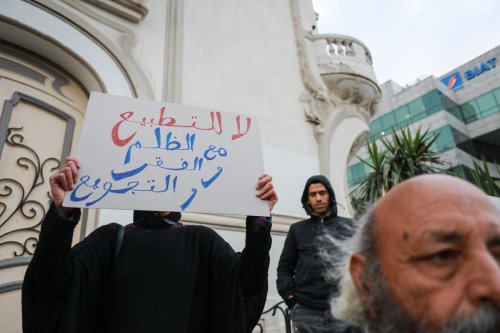 لا للتطبيع
مع الظلم
والفقر
والتجويع
BIAT